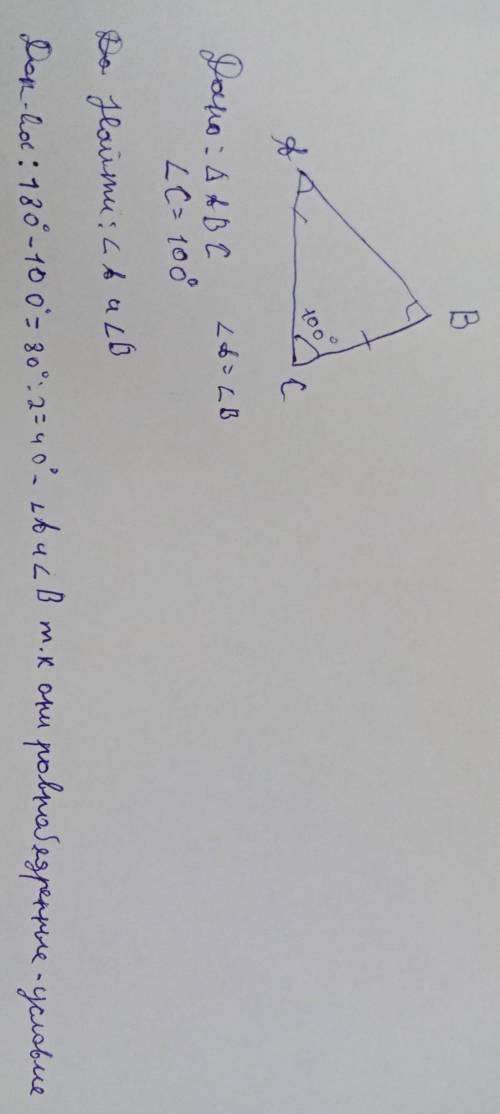 A
B
C
100°
Дано: △ABC ∠A=∠B
∠C=100°
До Найти: ∠A и ∠B
Док-во: 180°-100°=80°:2=40°-∠A и ∠B т.к они равнобедренные-условие